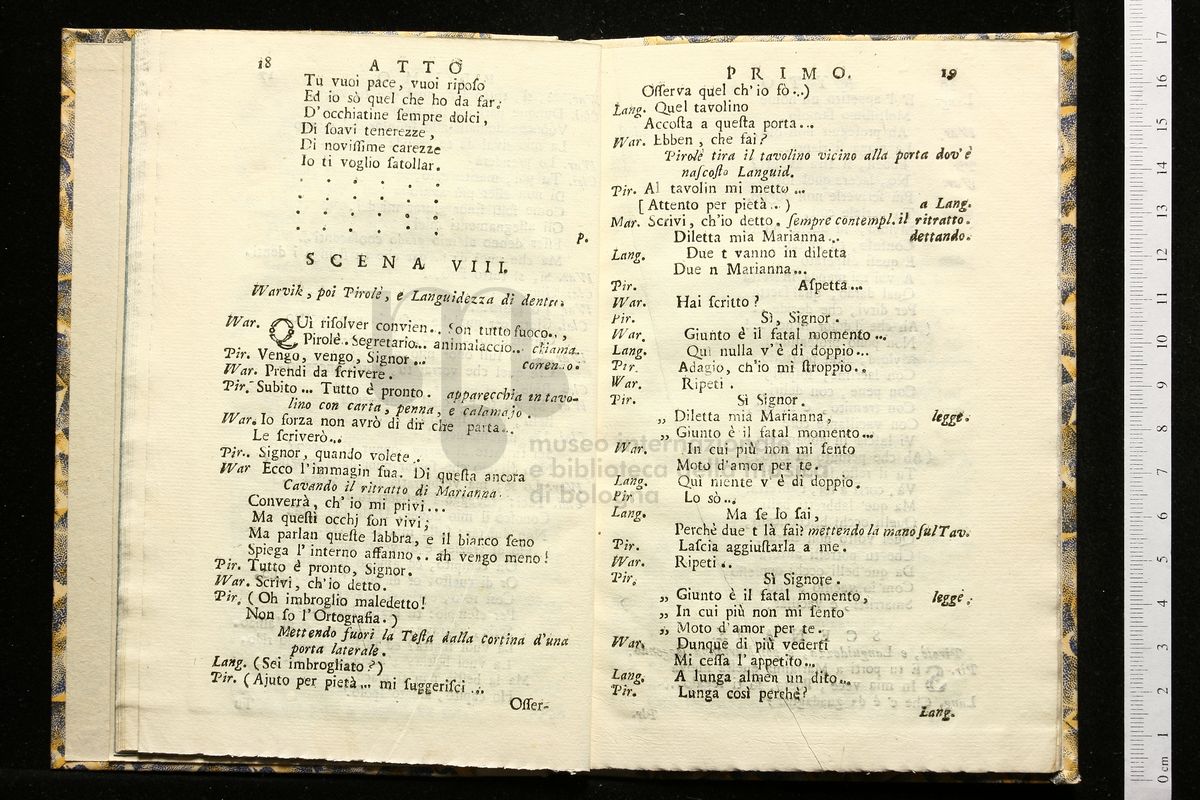 18 ATTO
Tu vuoi pace, vuoi riposo
Ed io sò quel che ho da far:
D'occhiatine sempre dolci,
Di soavi tenerezze,
Di novissime carezze
Io ti voglio satollar.
. . . . .
. . . . .
. . . . .
. . . . .
P.
SCENA VIII.
Warvik, poi Pirolè, e Languidezza di dentro.
War. QUì risolver convien.. Son tutto fuoco..,
Pirolè. Segretario... animalaccio... chiama.
Pir. Vengo, vengo, Signor... correndo.
War. Prendi da scrivere.
Pir. Subito... Tutto è pronto. apparecchia in tavo-
lino con carta, penna, e calamajo.
War. Io forza non avrò di dir che parta...
Le scriverò...
Pir. Signor, quando volete.
War Ecco l'immagin sua. Di questa ancora
Cavando il ritratto di Marianna.
Converrà, ch'io mi privi...
Ma questi occhj son vivi;
Ma parlan queste labbra, e il bianco seno
Spiega l'interno affanno.. ah vengo meno!
Pir. Tutto è pronto, Signor.
War. Scrivi, ch'io detto.
Pir. (Oh imbroglio maledetto!
Non so l'Ortografia.)
Mettendo fuori la Testa dalla cortina d'una
porta laterale.
Lang. (Sei imbrogliato?)
Pir. (Ajuto per pietà... mi suggerisci ...
Osser-
PRIMO. 19
Osserva quel ch'io sò...)
Lang. Quel tavolino
Accosta a questa porta...
War. Ebben, che fai?
Pirolè tira il tavolino vicino alla porta dov'è
nascosto Languid.
Pir. Al tavolin mi metto ...
[Attento per pietà..) a Lang.
Mar. Scrivi, ch'io detto. sempre contempl. il ritratto.
Diletta mia Marianna... dettando.
Lang. Due t vanno in diletta
Due n Marianna...
Pir. Aspetta...
War. Hai scritto?
Pir. Sì, Signor.
War. Giunto è il fatal momento ...
Lang. Qui nulla v'è di doppio...
Pir. Adagio, ch'io mi stroppio..
War. Ripeti.
Pir. Sì Signor.
„ Diletta mia Marianna, legge.
„ Giunto è il fatal momento...
War. In cui più non mi sento
Moto d'amor per te.
Lang. Qui niente v'è di doppio.
Pir. Lo sò...
Lang. Ma se lo sai,
Perchè due t là fai? mettendo la mano sul Tav.
Pir. Lascia aggiustarla a me.
War. Ripeti..
Pir. Sì Signore.
„ Giunto è il fatal momento, legge.
„ In cui più non mi sento
„ Moto d'amor per te.
War. Dunque di più vederti
Mi cessa l'appetito...
Lang. A lunga almen un dito...
Pir. Lunga così perchè?
Lang.
museo internazionale
e biblioteca della musica
di bologna
0 cm 1 2 3 4 5 6 7 8 9 10 11 12 13 14 15 16 17